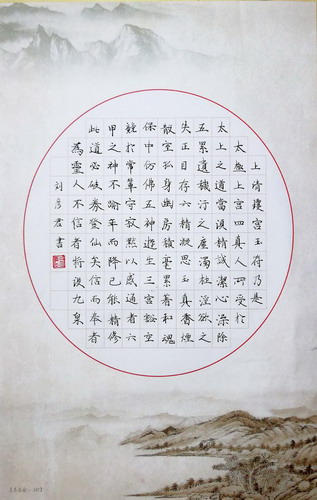 上清瓊宮玉符乃是
太極上宮四真人所受於
太上之道當須精誠潔心澡除
五累遺穢汙之塵濁杜淫欲之
失正目存六精凝思玉真香煙
散室孤身幽房積毫累著和魂
保中仿佛五神遊生三宮豁空
競於常輩守寂默以感通者六
甲之神不踰年而降己能精修
此道必破券登仙矣信而奉者
為靈人不信者將沒九泉
劉彥君書